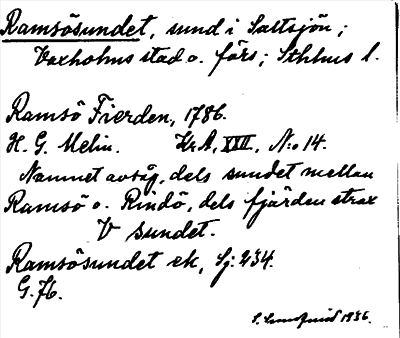 Ramsösundet, sund i Saltsjön;
Vaxholms stad o. förs; Sthlms l.
Ramsö Fierden, 1786.
H. G. Melin. Kr.A, XXII, N:o 14.
Namnet avsåg, dels sundet mellan
Ramsö o. Rindö, dels fjärden strax
V sundet.
Ramsösundet ek, Sj: 234.
G. 76.
S. 1936.